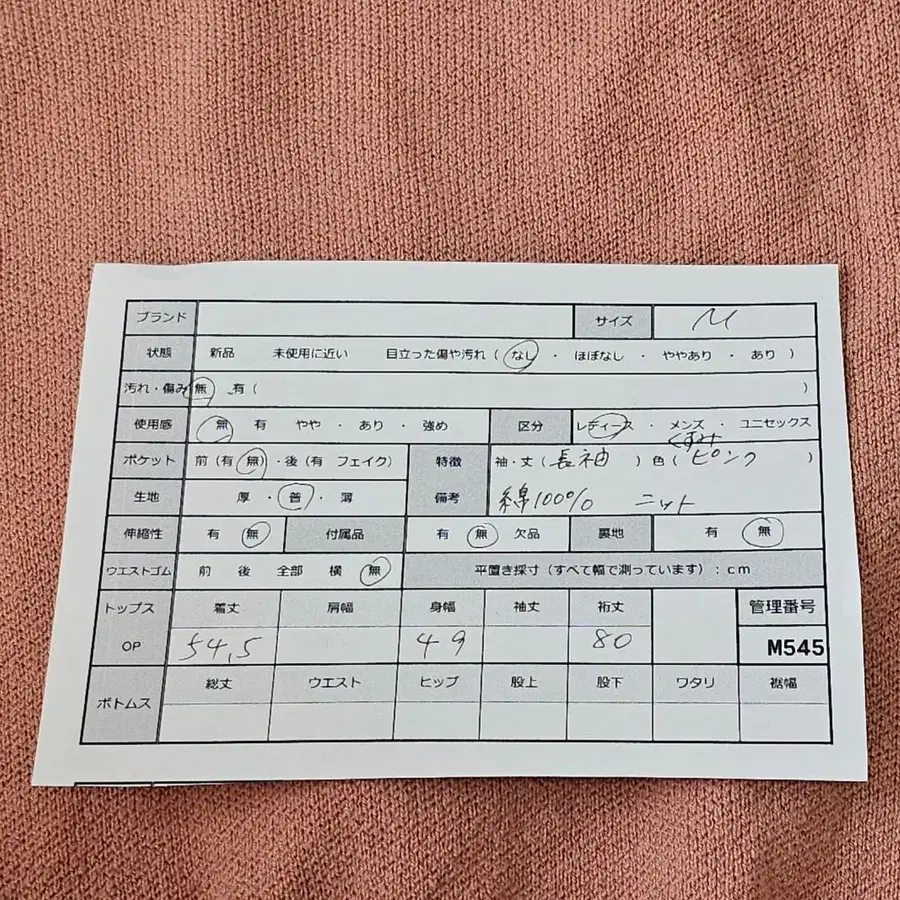 ブランド サイズ M
状態 新品 未使用に近い 目立った傷や汚れ ( なし ・ ほぼなし ・ ややあり ・ あり )
汚れ・傷み 無 有 ( )
使用感 無 有 やや ・ あり ・ 強め 区分 レディース ・ メンズ ・ ユニセックス
くすみ
ポケット 前 (有 無)・後 (有 フェイク) 特徴 袖・丈 ( 長袖 ) 色 ( ピンク )
生地 厚 ・ 普 ・ 薄 備考 綿100% ニット
伸縮性 有 無 付属品 有 無 欠品 裏地 有 無
ウエストゴム 前 後 全部 横 無 平置き採寸 (すべて幅で測っています) : cm
トップス 着丈 肩幅 身幅 袖丈 裄丈 管理番号
OP 54,5 49 80 M545
ボトムス 総丈 ウエスト ヒップ 股上 股下 ワタリ 裾幅